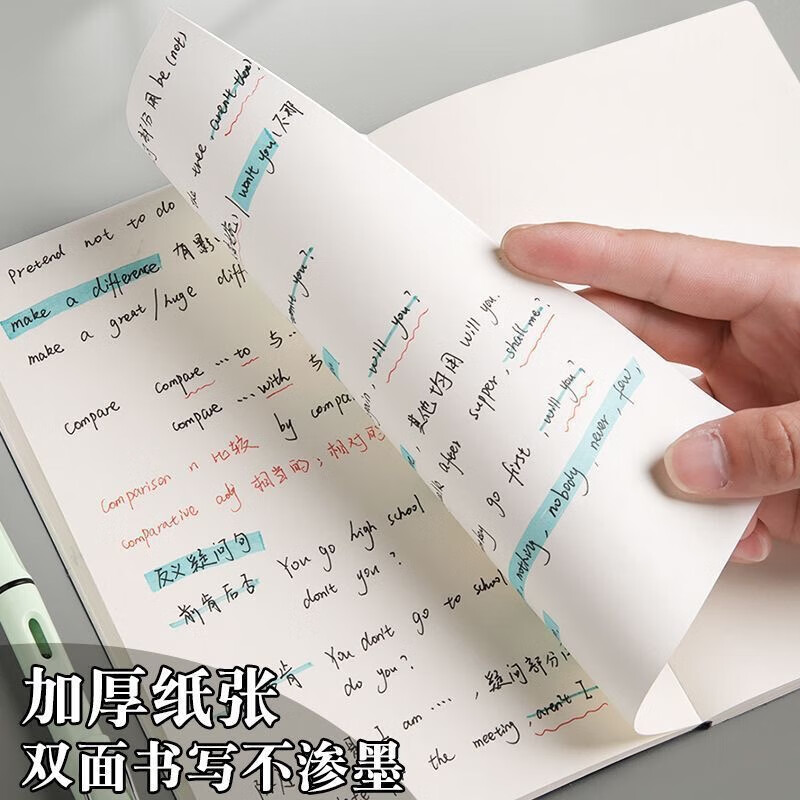 Pretend not to do
make a difference 有影
make a great/huge diff
compare compare ... to 与
compare ... with 与
by compa
Comparison n 比较
comparative adj 相当的；相对的
反义疑问句 You go high school
前肯后否 don't you?
肯 You don't go to school
do you?
am ...., 疑问部分
the meeting, aren't I
部分用 be (not)
tree, aren't there?
/ won't you (不那
will you?
其他均用 will you.
after supper, shall me?
go first, will you?
nothing, nobody, never, few,
加厚纸张
双面书写不渗墨